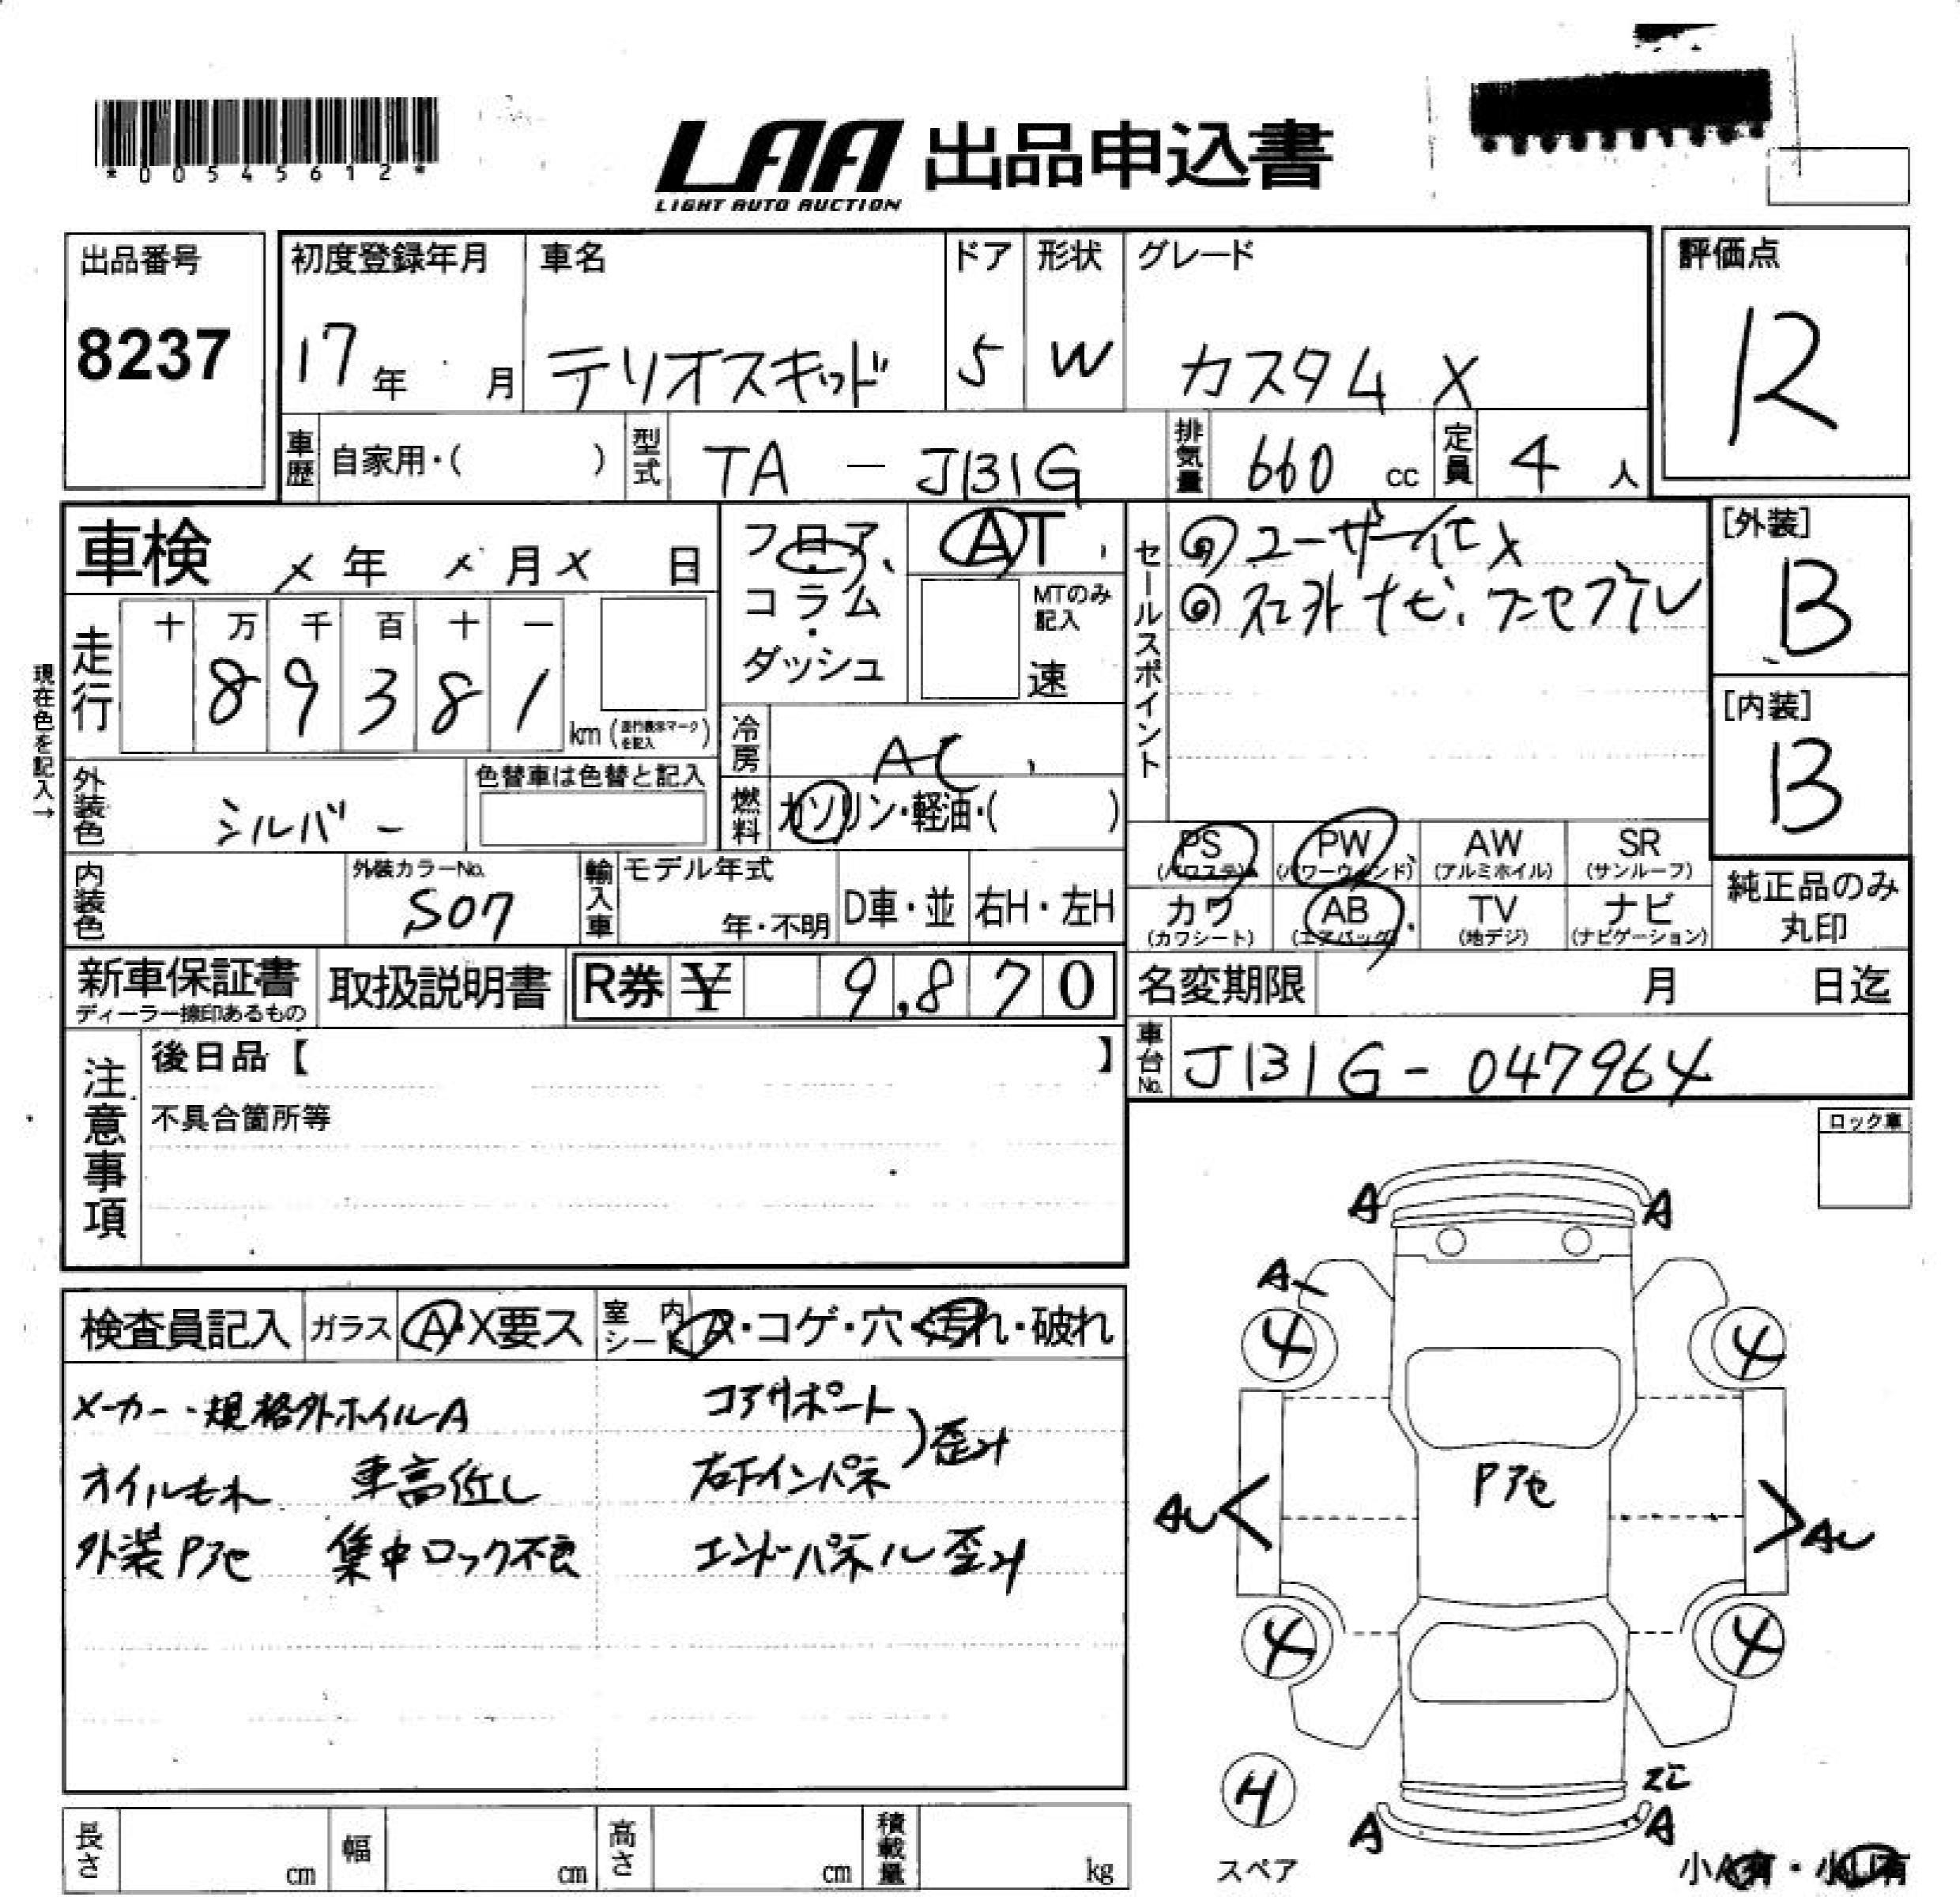 *00545612*
LAA 出品申込書
LIGHT AUTO AUCTION
出品番号
8237
初度登録年月
17年 月
車名
テリオスキッド
ドア
5
形状
W
グレード
カスタム X
評価点
R
車歴
自家用・( )
型式
TA - J131G
排気量
660 cc
定員
4 人
車検
X 年 X 月 X 日
フロア、
コラム
・
ダッシュ
AT
MTのみ
記入
速
セールスポイント
◎ユーザー化X
◎社外ナビ、フーセブル
[外装]
B
[内装]
B
現在色を記入→
走行
十 万 千 百 十 一
8 9 3 8 1
km (走行表示マークを記入)
冷房
AC
燃料
ガソリン・軽油・( )
外装色
シルバー
色替車は色替と記入
内装色
外装カラーNo.
S07
輸入車
モデル年式
年・不明
D車・並
右H・左H
PS
(パワステ)
PW
(パワーウインド)
AW
(アルミホイル)
SR
(サンルーフ)
カワ
(カワシート)
AB
(エアバッグ)
TV
(地デジ)
ナビ
(ナビゲーション)
純正品のみ
丸印
新車保証書
ディーラー捺印あるもの
取扱説明書
R券 ¥ 9,870
名変期限 月 日迄
車台No.
J131G-047964
注意事項
後日品【 】
不具合箇所等
ロック車
検査員記入
ガラス
A・X要ス
室内
シート
ス・コゲ・穴・汚れ・破れ
メーカー・規格外ホイルA
コアサポート
右下インパネ
)歪み
オイルもれ 車高低し
外装Pアセ 集中ロック不良
エンドパネル歪み
A A
A
4 4
Pアセ
AU AU
4 4
H
スペア
A A
小A有・小U有
長さ cm
幅 cm
高さ cm
積載量 kg